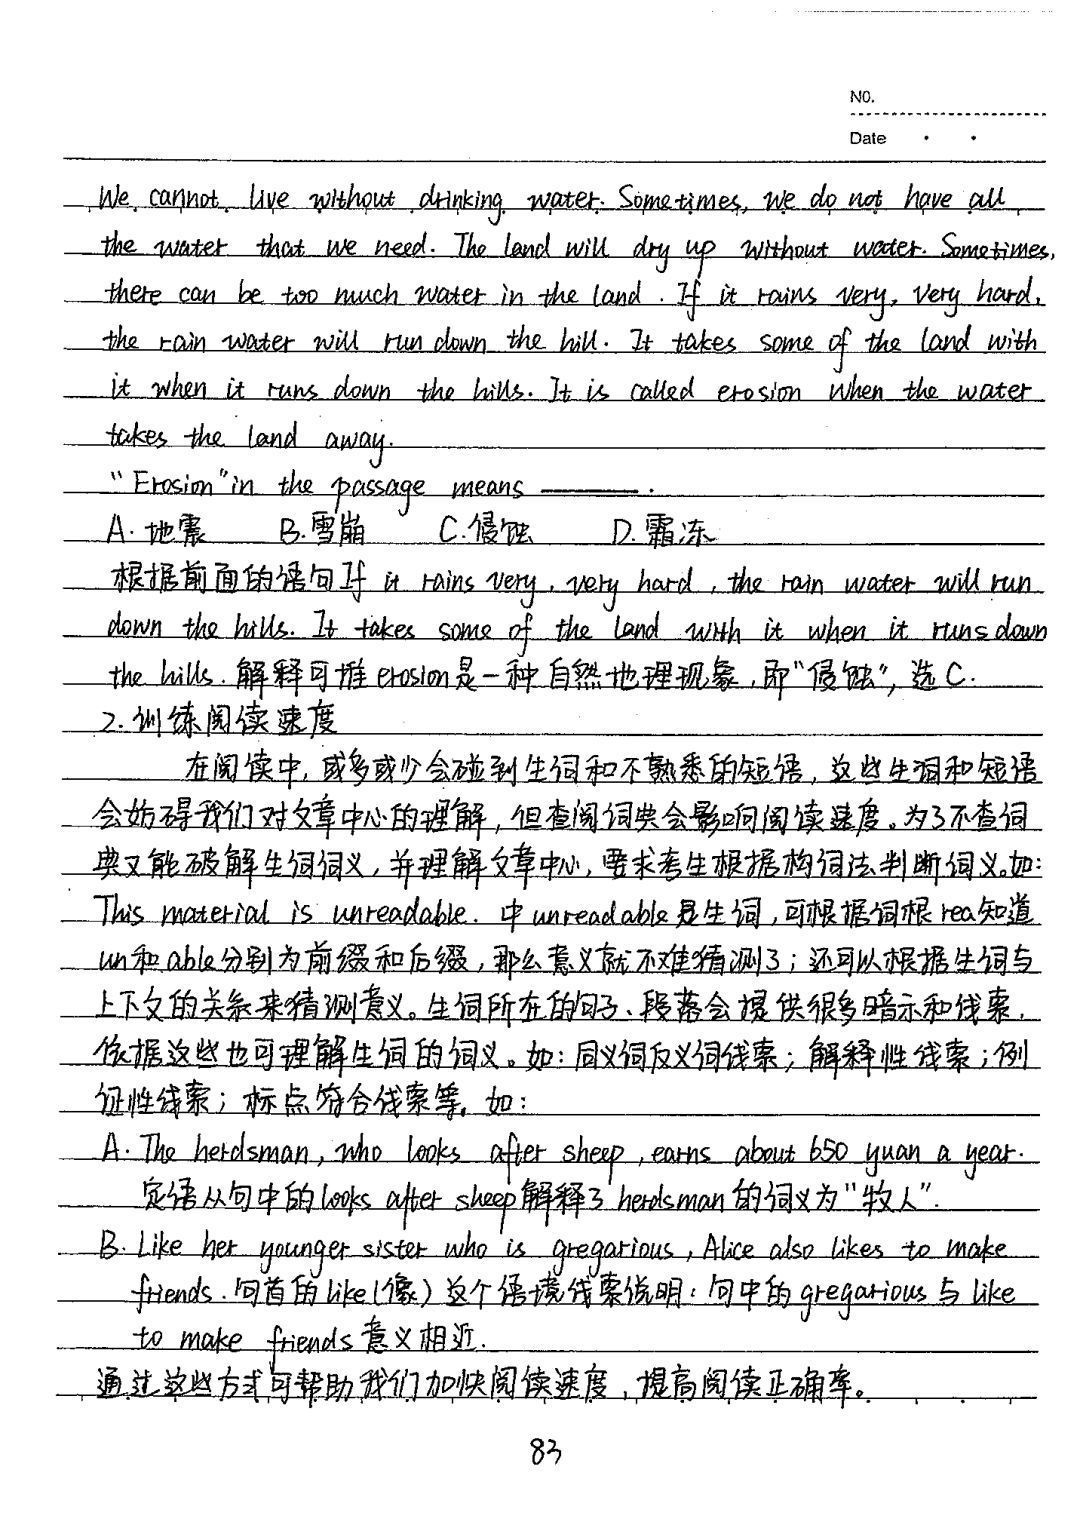 NO.
Date
We cannot live without drinking water. Sometimes, we do not have all
the water that we need. The land will dry up without water. Sometimes,
there can be too much water in the land. If it rains very, very hard,
the rain water will run down the hill. It takes some of the land with
it when it runs down the hills. It is called erosion when the water
takes the land away.
"Erosion" in the passage means ______.
A. 地震 B. 雪崩 C. 侵蚀 D. 霜冻
根据前面的语句If it rains very, very hard, the rain water will run
down the hills. It takes some of the land with it when it runs down
the hills. 解释可推erosion是一种自然地理现象,即"侵蚀",选C.
2. 训练阅读速度
在阅读中,或多或少会碰到生词和不熟悉的短语,这些生词和短语
会妨碍我们对文章中心的理解,但查阅词典会影响阅读速度。为了不查词
典又能破解生词词义,并理解文章中心,要求考生根据构词法判断词义。如:
This material is unreadable. 中unreadable是生词,可根据词根rea知道
un和able分别为前缀和后缀,那么意义就不难猜测了;还可以根据生词与
上下文的关系来猜测意义。生词所在的句子、段落会提供很多暗示和线索,
依据这些也可理解生词的词义。如:同义词反义词线索;解释性线索;例
证性线索;标点符合线索等。如:
A. The herdsman, who looks after sheep, earns about 650 yuan a year.
定语从句中的looks after sheep解释了herdsman的词义为"牧人".
B. Like her younger sister who is gregarious, Alice also likes to make
friends. 句首的like(像)这个语境线索说明:句中的gregarious与like
to make friends意义相近.
通过这些方式可帮助我们加快阅读速度,提高阅读正确率。
83